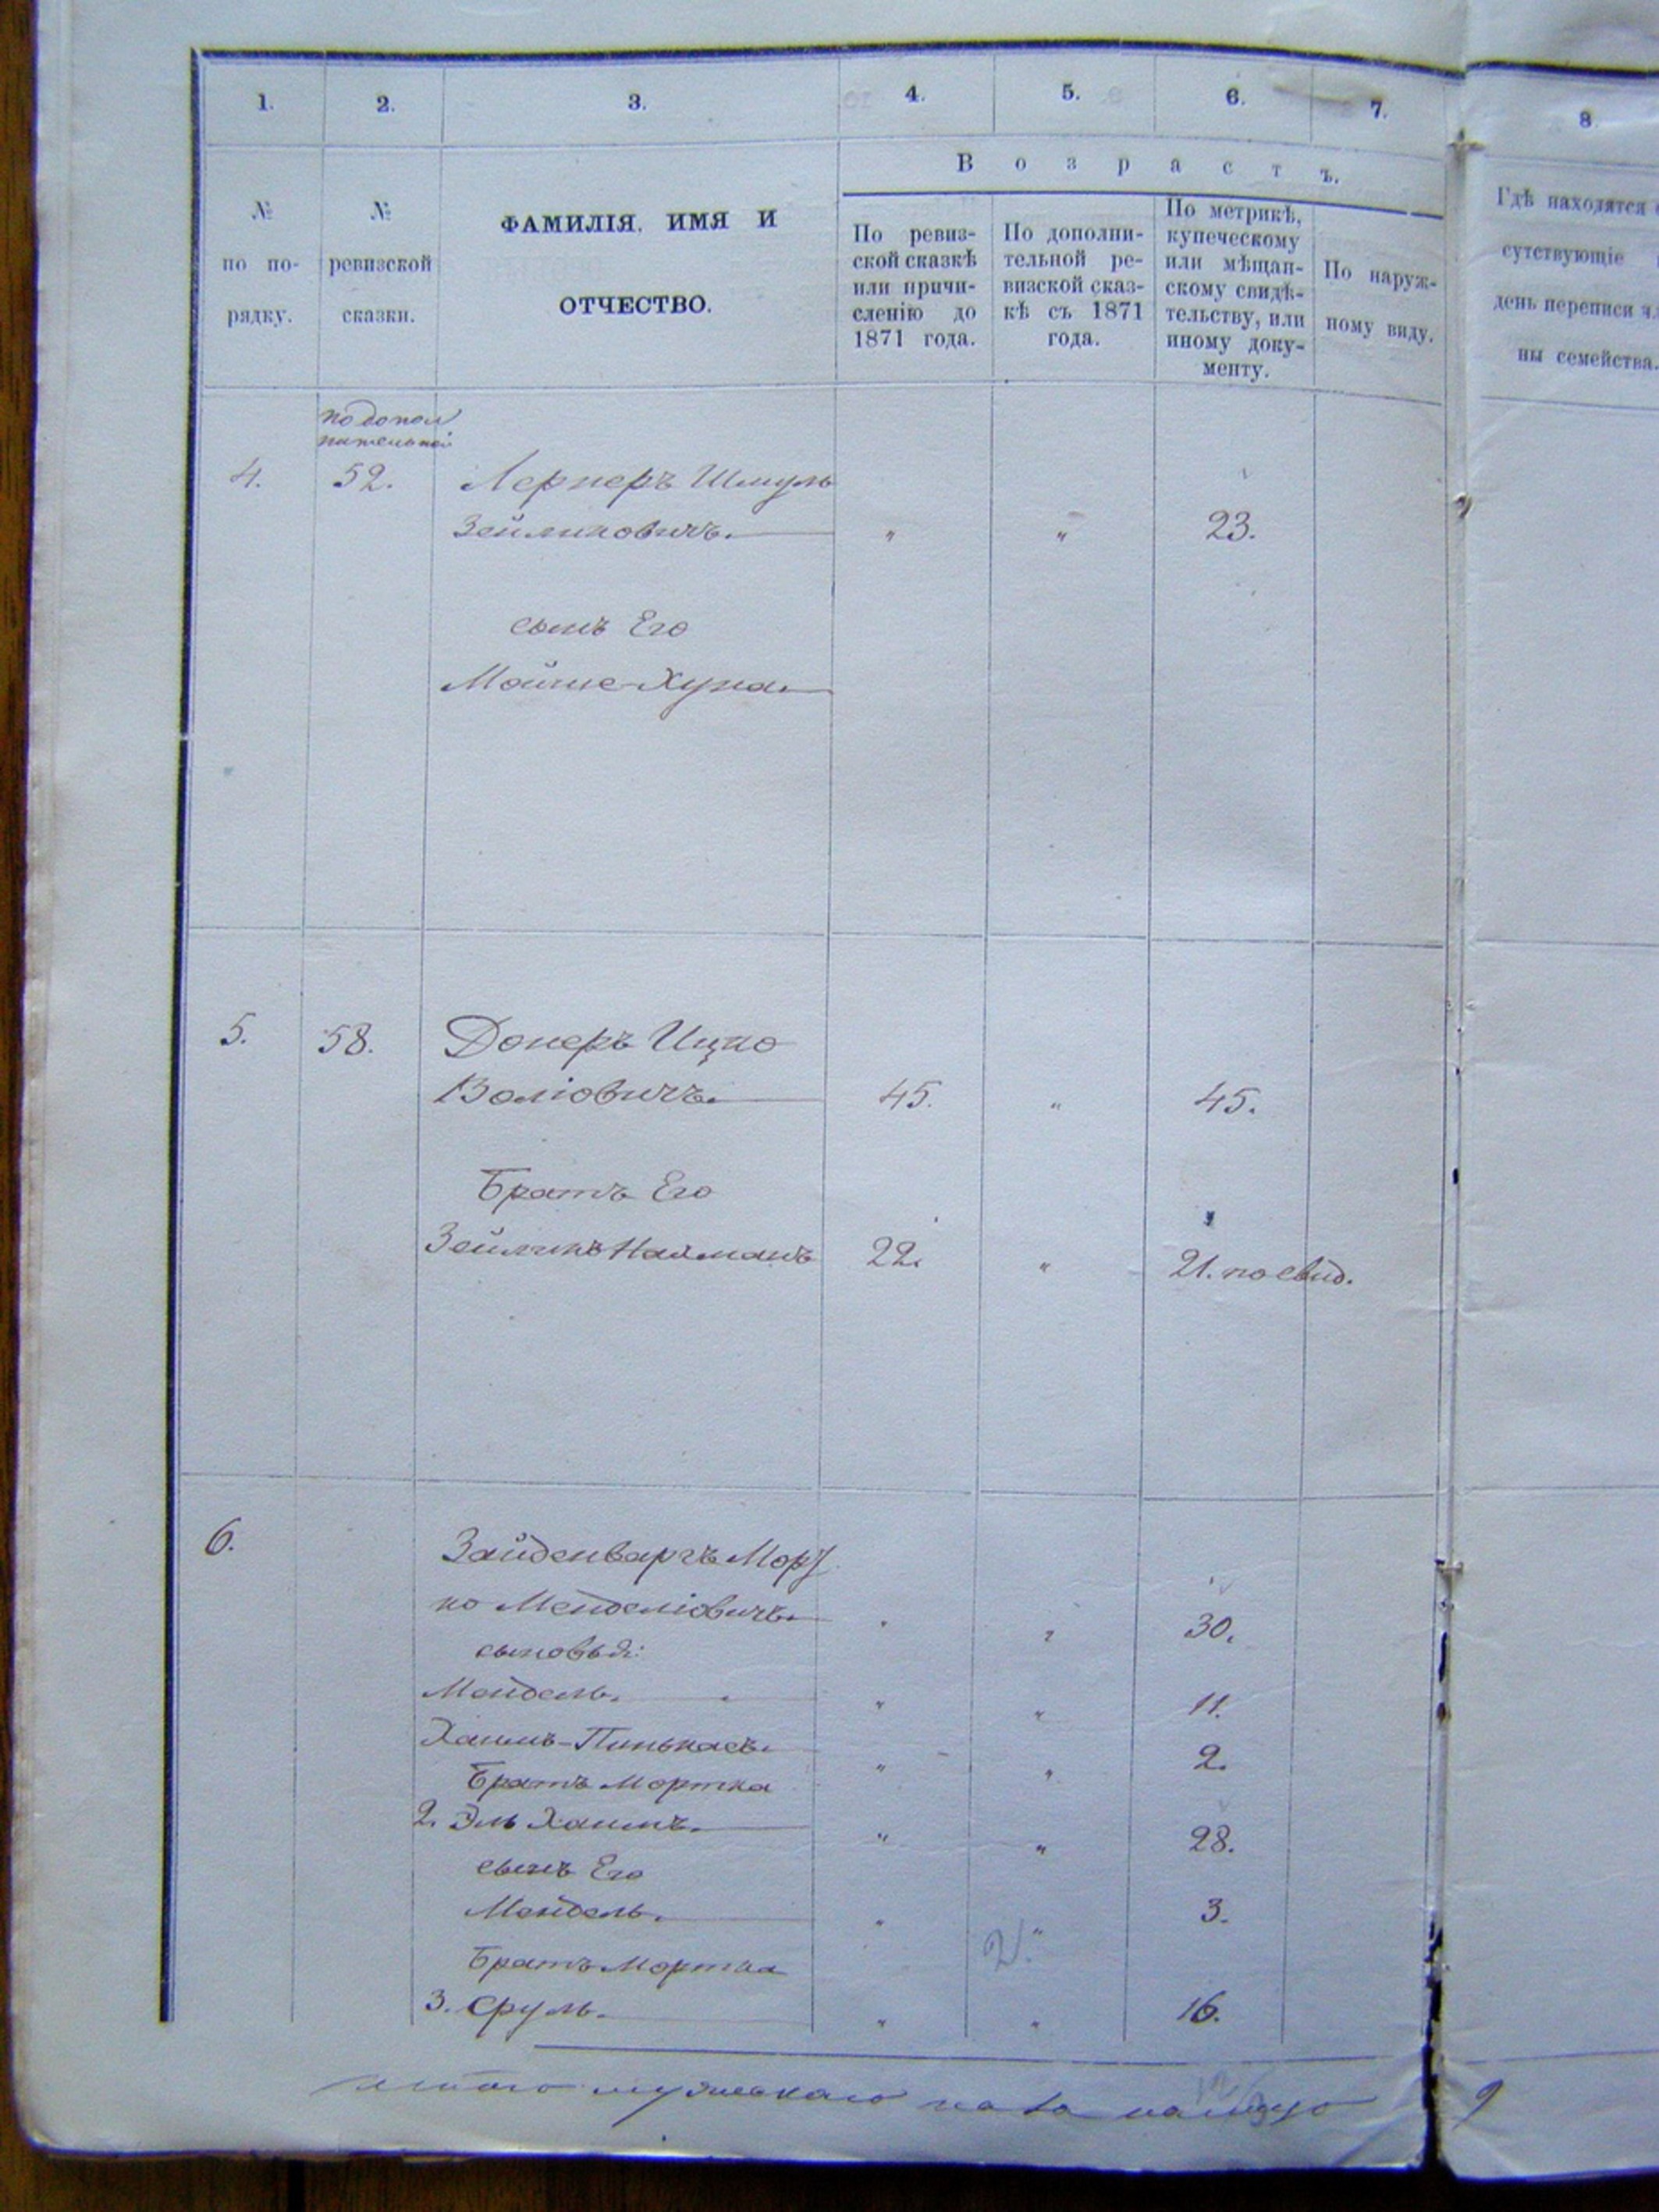 1. 2. 3. 4. 5. 6. 7. 8.
В о з р а с т ъ.
№ по по-рядку.
№ ревизской сказки.
ФАМИЛІЯ, ИМЯ И
ОТЧЕСТВО.
По ревиз-
ской сказкѣ
или причи-
сленію до
1871 года.
По дополни-
тельной ре-
визской сказ-
кѣ съ 1871
года.
По метрикѣ,
купеческому
или мѣщан-
скому свидѣ-
тельству, или
иному доку-
менту.
По наруж-
ному виду.
Гдѣ находятся
сутствующіе
день переписи
ны семейства.
по допол
нительной
4. 52. Лернеръ Шмуль
Зейликовичъ. " " 23.
сынъ Его
Мойше-Хуна
5. 58. Донеръ Ицко
Воліовичъ 45. " 45.
Братъ Его
Зейликъ Нахманъ 22. " 21. по свид.
6. Зайденваргъ Морт
ко Менделіовичъ " " 30.
сыновья:
Мендель. " " 11.
Хаимъ-Пинькасъ " " 2.
Братъ Мортка
2. Эль Хаимъ. " " 28.
сынъ Его
Мендель. " " 3.
Братъ Мортка
3. Сруль. " " 16.
итого мужескаго пола налицо 9